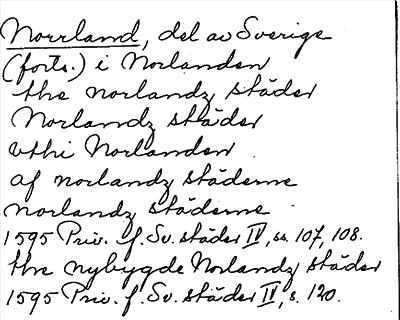 Norrland, del av Sverige
(forts.) i Norlanden
the norlandz städer
Norlandz städer
vthi Norlanden
af norlandz städerne
norlandz städerne
1595 Priv. f. Sv. städer IV, ss. 107, 108.
the nybygde Norlandz städer
1595 Priv. f. Sv. städer IV, s. 120.